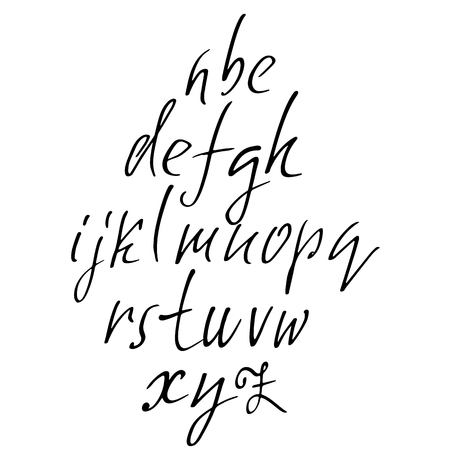 abc
defgh
ijklmnopq
rstuvw
xyz